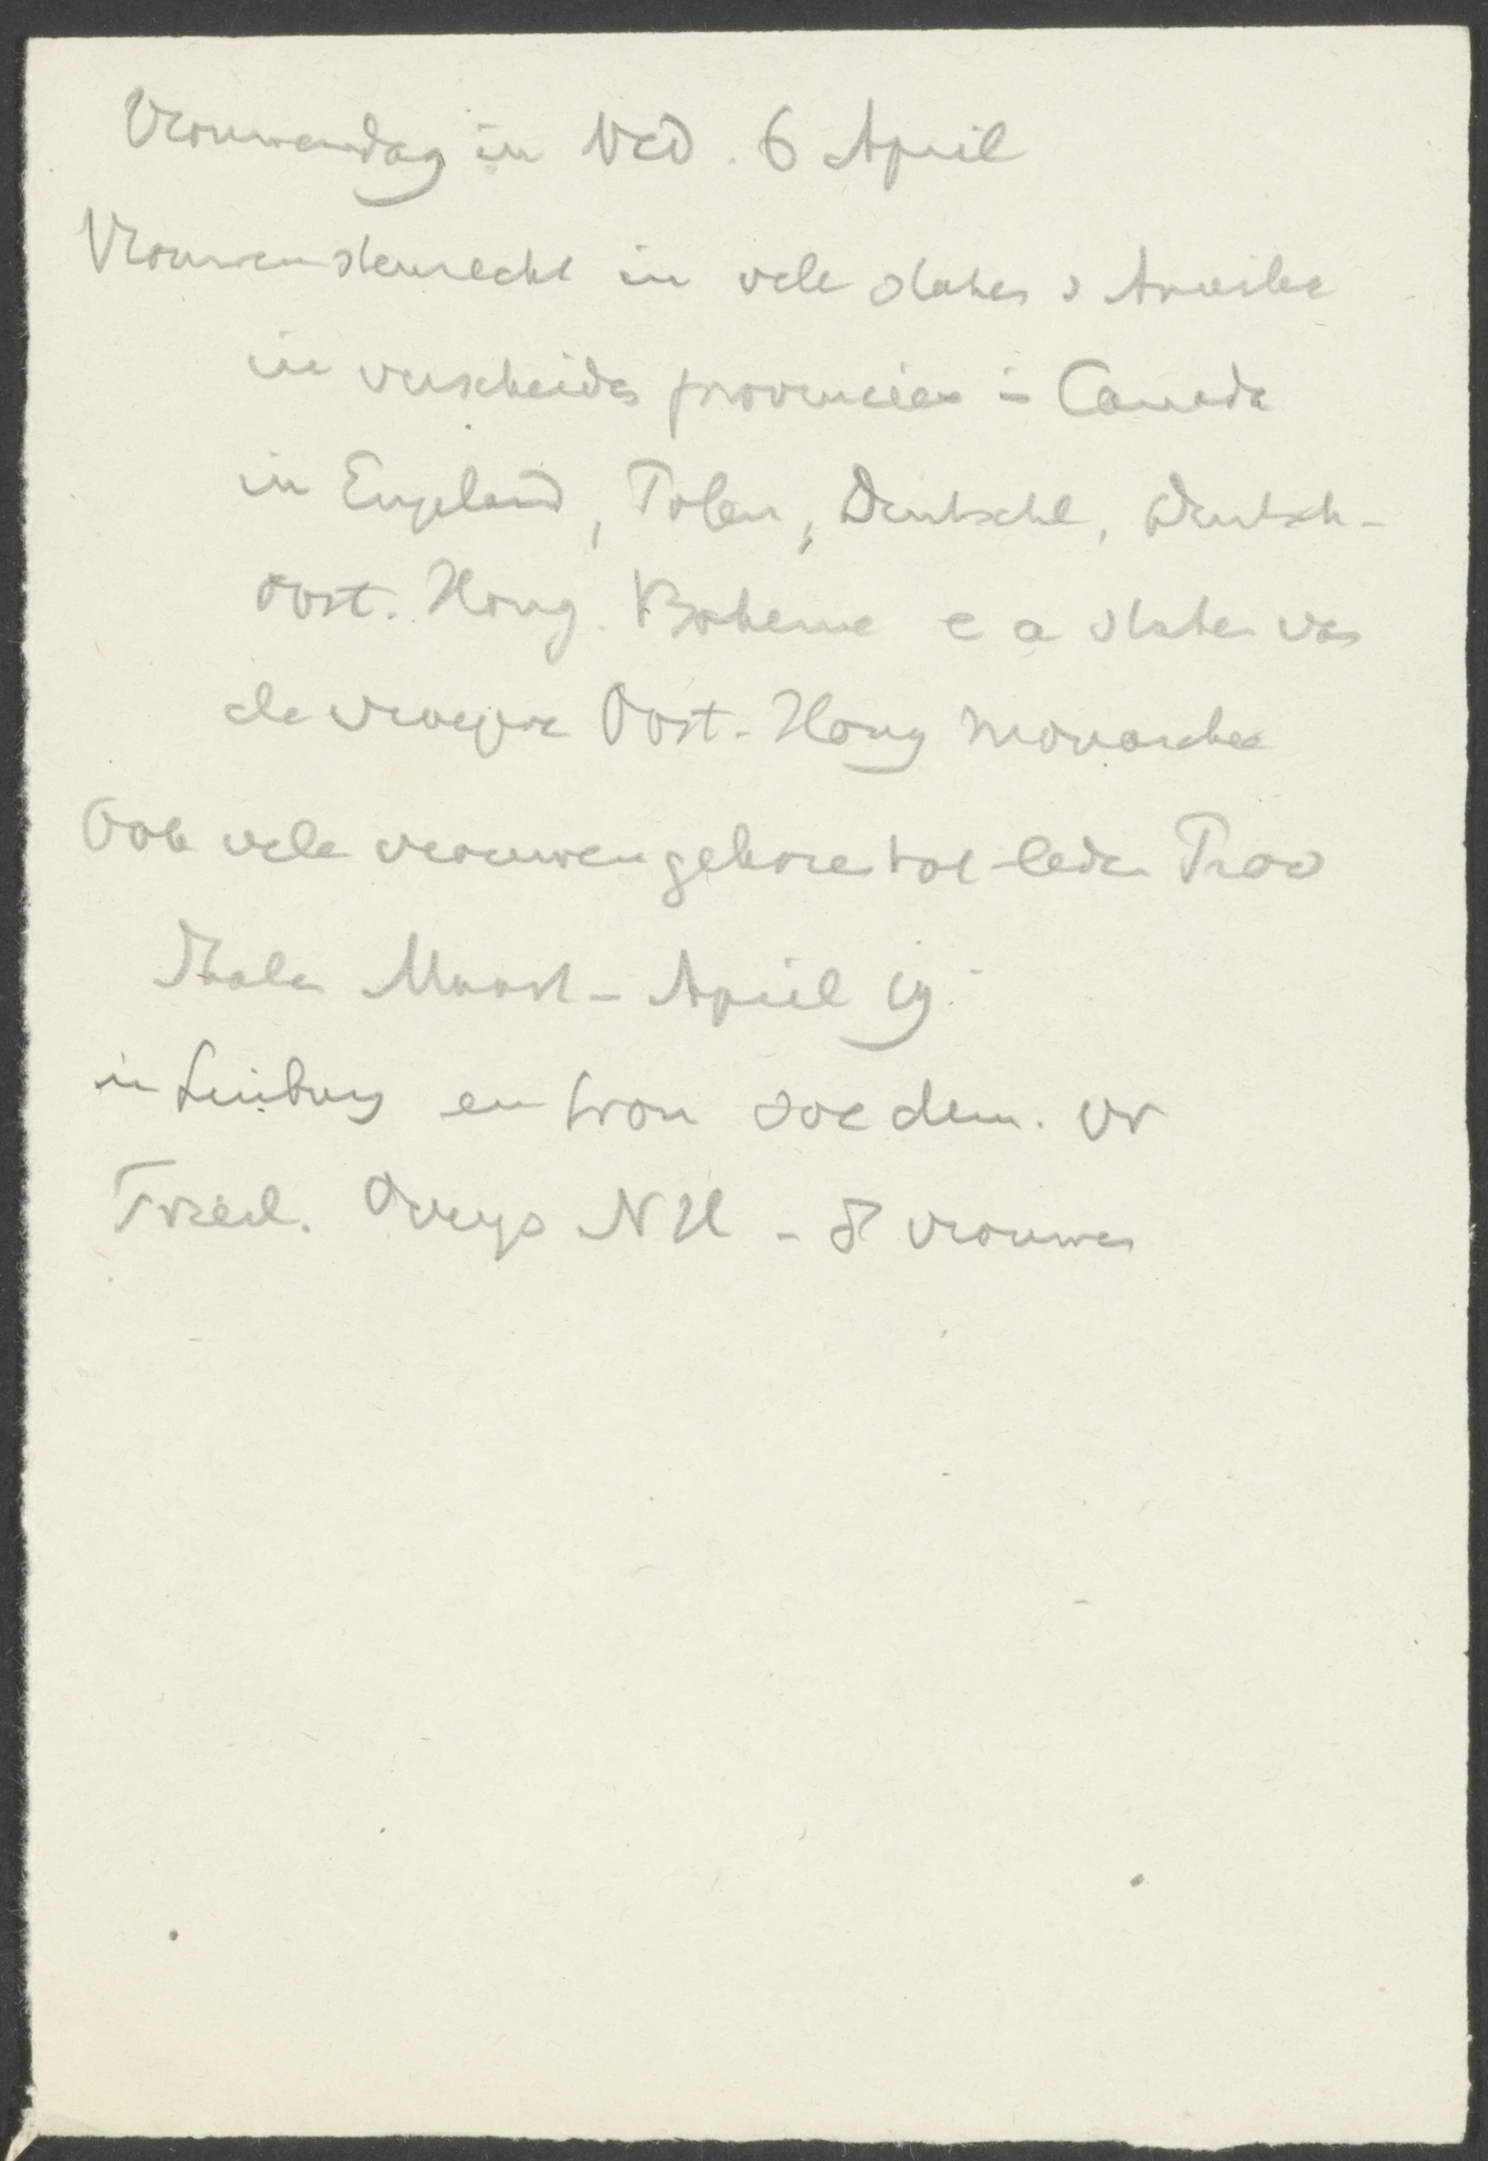 Vrouwendag in Ned. 6 April
Vrouwenstemrecht in vele staten v Amerika
in verscheiden provincien in Canada
in Engeland, Polen, Deutschl, Deutsch-
Oost. Hong. Boheme e a staten van
de vroegere Oost-Hong monarchie
Ook vele vrouwen gekozen tot leden Prov
Staten Maart - April 19.
in Limburg en Gron soc dem. vr
Friesl. Overijs NH - 8 vrouwen